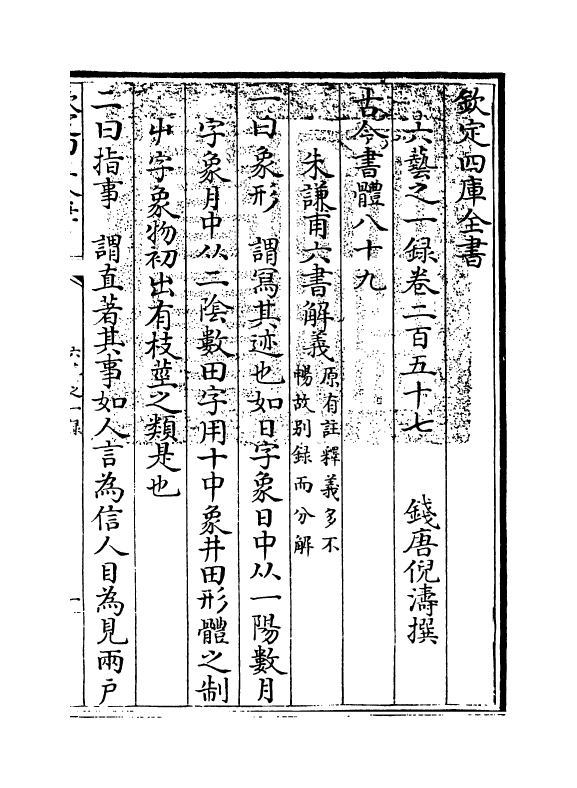 欽定四庫全書
六藝之一録卷二百五十七
錢唐倪濤撰
古今書體八十九
朱謙甫六書解義
原有註釋義多不
暢故别録而分解
一曰象形 謂冩其迹也如日字象日中从一陽數月
字象月中从二陰數田字用十中象井田形體之制
屮字象物初出有枝莖之類是也
二曰指事 謂直著其事如人言為信人目為見兩戶